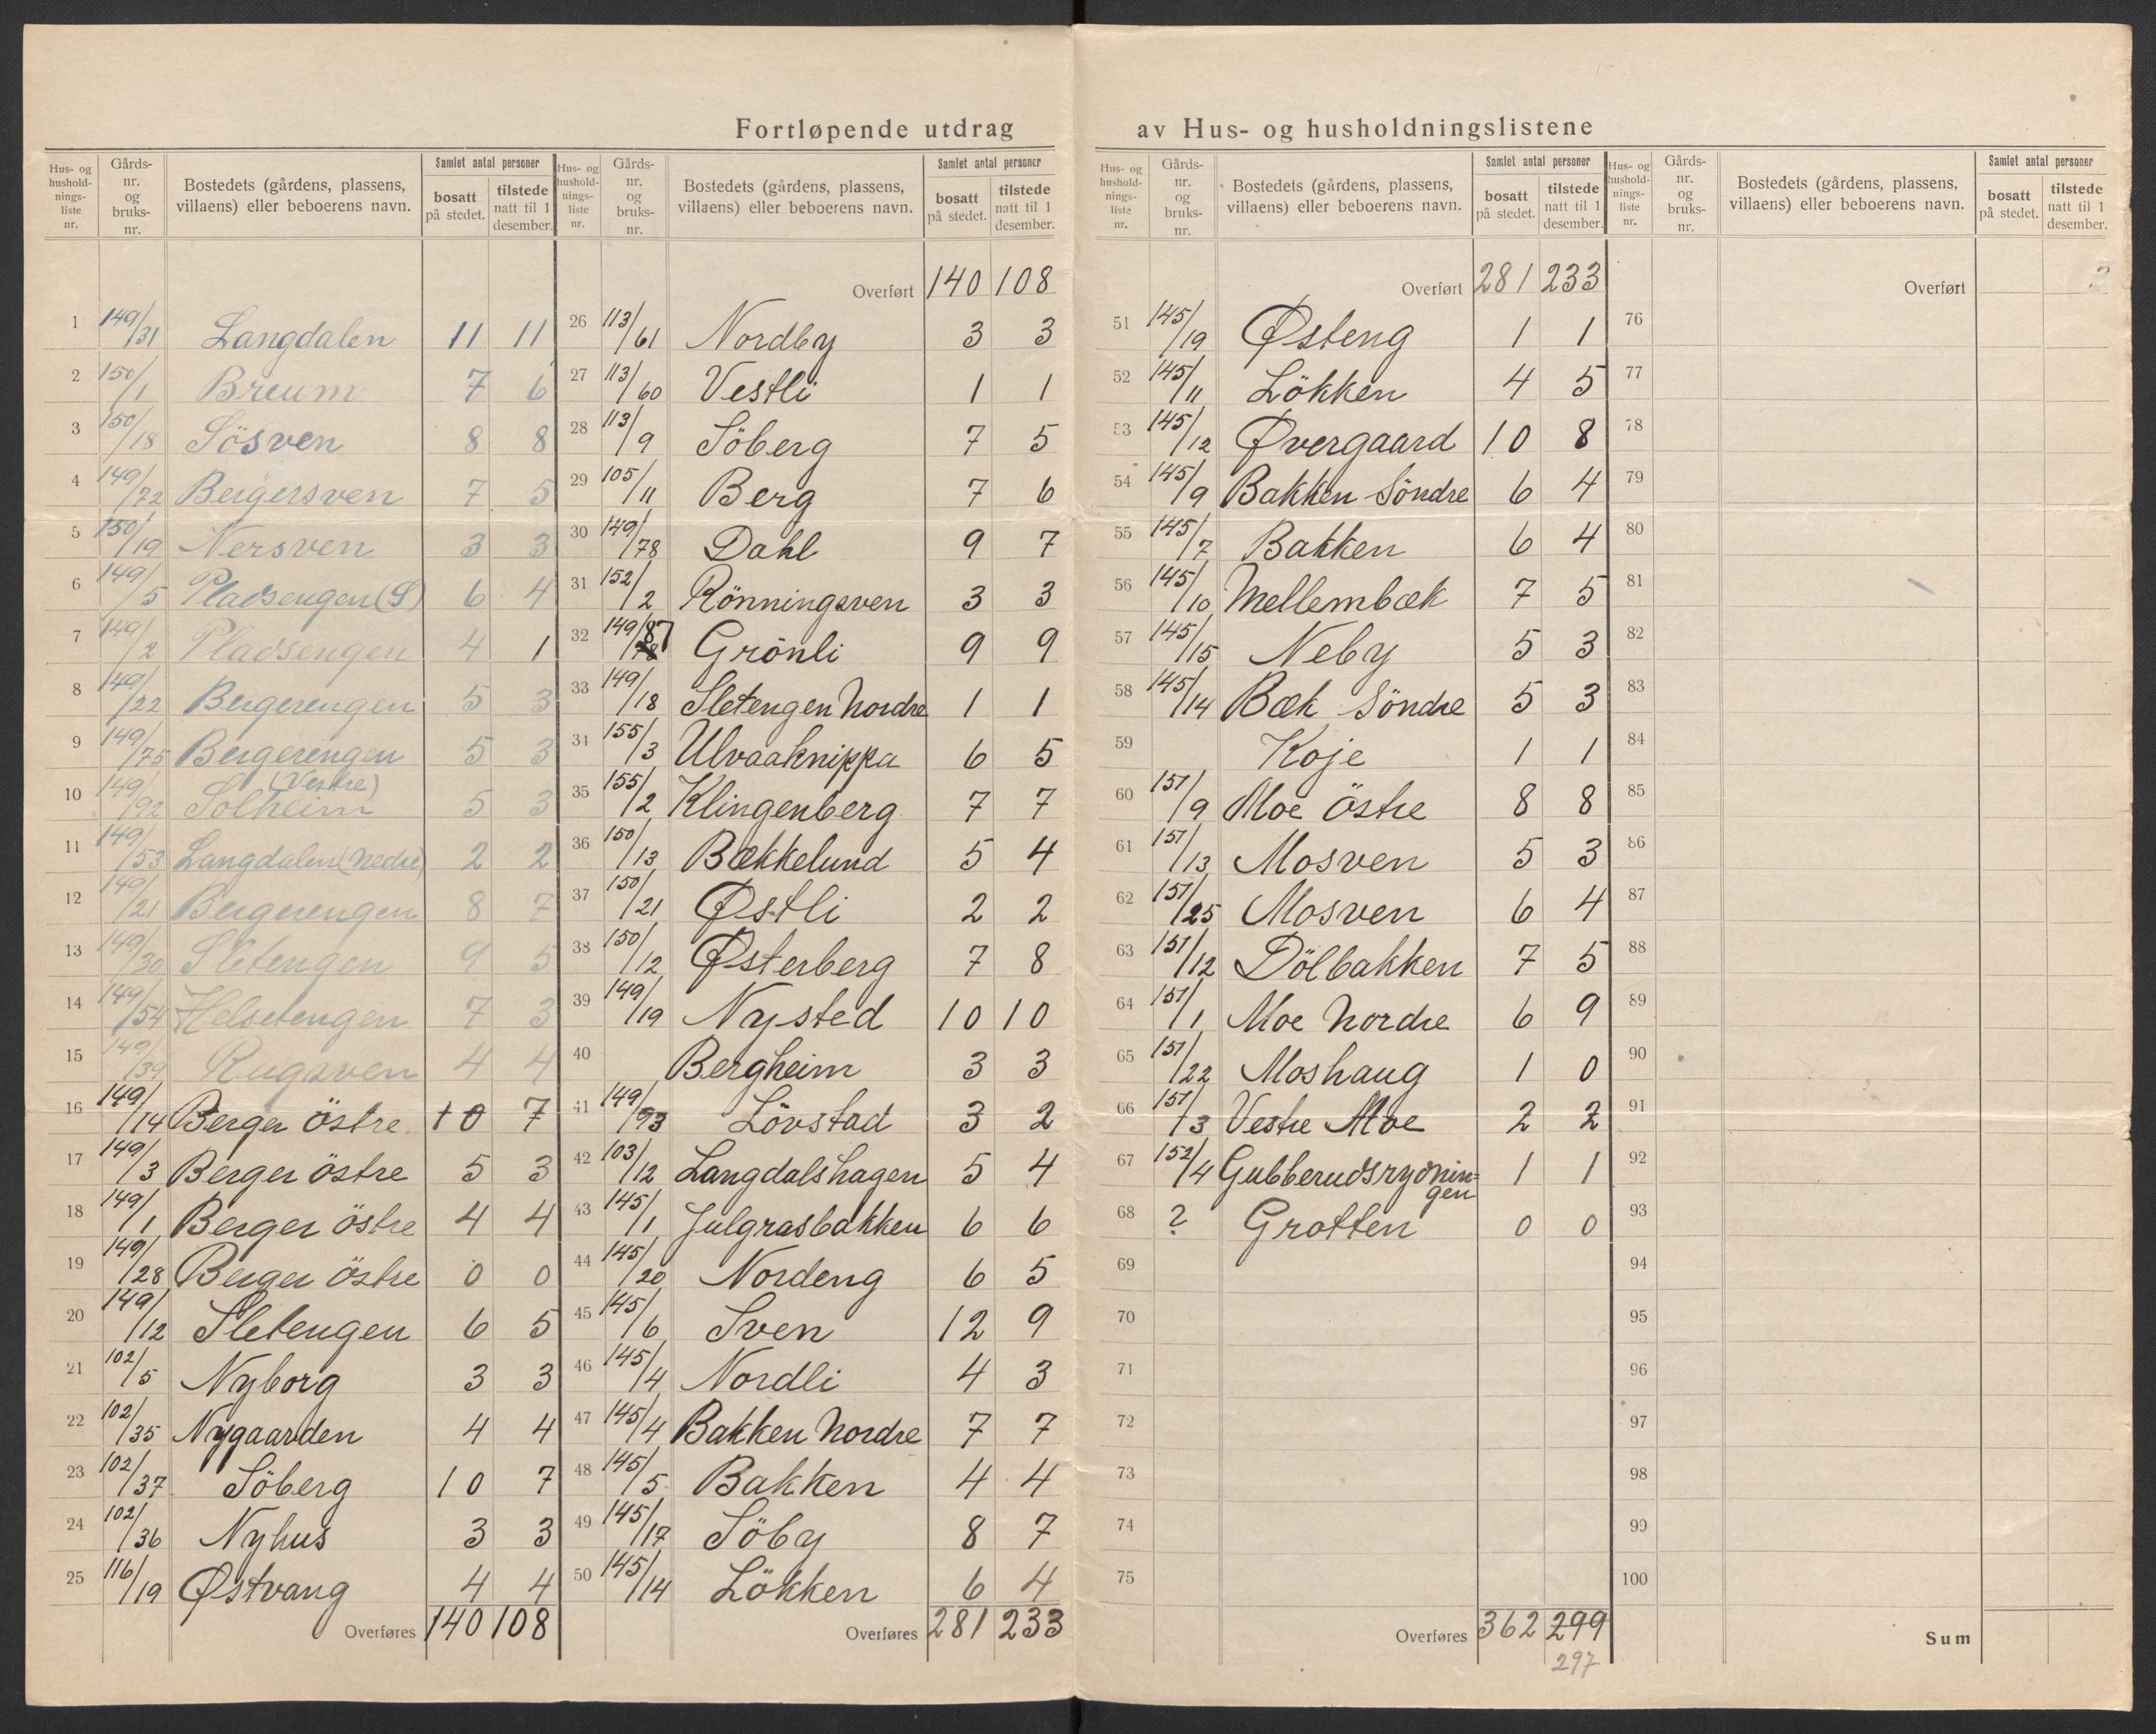 Fortløpende utdrag av Hus- og husholdningslistene
Hus- og hushold- nings- liste nr. | Gårds- nr. og bruks- nr. | Bostedets (gårdens, plassens, villaens) eller beboerens navn. | Samlet antal personer | bosatt på stedet. | tilstede natt til 1 desember.
1 149/31 Langdalen 11 11
2 150/1 Breum 7 6
3 150/18 Sösven 8 8
4 149/72 Bergersven 7 5
5 150/19 Nersven 3 3
6 149/5 Pladsengen (S) 6 4
7 149/2 Pladsengen 4 1
8 149/22 Bergerengen 5 3
9 149/75 Bergerengen 5 3
10 149/92 Solheim (Vestre) 5 3
11 149/53 Langdalen (Nedre) 2 2
12 149/21 Bergerengen 8 7
13 149/30 Sletengen 9 5
14 149/54 Helsetengen 7 3
15 149/39 Rugsven 4 4
16 149/14 Berger östre 10 7
17 149/3 Berger östre 5 3
18 149/1 Berger östre 4 4
19 149/28 Berger östre 0 0
20 149/12 Sletengen 6 5
21 102/5 Nyborg 3 3
22 102/35 Nygaarden 4 4
23 102/37 Söberg 10 7
24 102/36 Nyhus 3 3
25 116/19 Østvang 4 4
Overføres 140 108
Hus- og hushold- nings- liste nr. | Gårds- nr. og bruks- nr. | Bostedets (gårdens, plassens, villaens) eller beboerens navn. | Samlet antal personer | bosatt på stedet. | tilstede natt til 1 desember.
Overført 140 108
26 113/61 Nordby 3 3
27 113/60 Vestli 1 1
28 113/9 Söberg 7 5
29 105/11 Berg 7 6
30 149/78 Dahl 9 7
31 152/2 Rönningsven 3 3
32 149/87 Grönli 9 9
33 149/18 Sletengen Nordre 1 1
34 155/3 Ulvaaknippa 6 5
35 155/2 Klingenberg 7 7
36 150/13 Bækkelund 5 4
37 150/21 Østli 2 2
38 150/12 Østerberg 7 8
39 149/19 Nysted 10 10
40 Bergheim 3 3
41 149/93 Lövstad 3 2
42 103/12 Langdalshagen 5 4
43 145/1 Julgrasbakken 6 6
44 145/20 Nordeng 6 5
45 145/6 Sven 12 9
46 145/4 Nordli 4 3
47 145/4 Bakken Nordre 7 7
48 145/5 Bakken 4 4
49 145/17 Söby 8 7
50 145/14 Lökken 6 4
Overføres 281 233
Hus- og hushold- nings- liste nr. | Gårds- nr. og bruks- nr. | Bostedets (gårdens, plassens, villaens) eller beboerens navn. | Samlet antal personer | bosatt på stedet. | tilstede natt til 1 desember.
Overført 281 233
51 145/19 Østeng 1 1
52 145/11 Lökken 4 5
53 145/12 Øvergaard 10 8
54 145/9 Bakken Söndre 6 4
55 145/7 Bakken 6 4
56 145/10 Mellembæk 7 5
57 145/15 Neby 5 3
58 145/14 Bæk Söndre 5 3
59 Koje 1 1
60 151/9 Moe Östre 8 8
61 151/13 Mosven 5 3
62 151/25 Mosven 6 4
63 151/12 Dölbakken 7 5
64 151/1 Moe Nordre 6 9
65 151/22 Moshaug 1 0
66 151/3 Vestre Moe 2 2
67 152/4 Gubberudsrydnin=
gen 1 1
68 ? Grotten 0 0
69
70
71
72
73
74
75
Overføres 362 299
297
Hus- og hushold- nings- liste nr. | Gårds- nr. og bruks- nr. | Bostedets (gårdens, plassens, villaens) eller beboerens navn. | Samlet antal personer | bosatt på stedet. | tilstede natt til 1 desember.
Overført
76
77
78
79
80
81
82
83
84
85
86
87
88
89
90
91
92
93
94
95
96
97
98
99
100
Sum